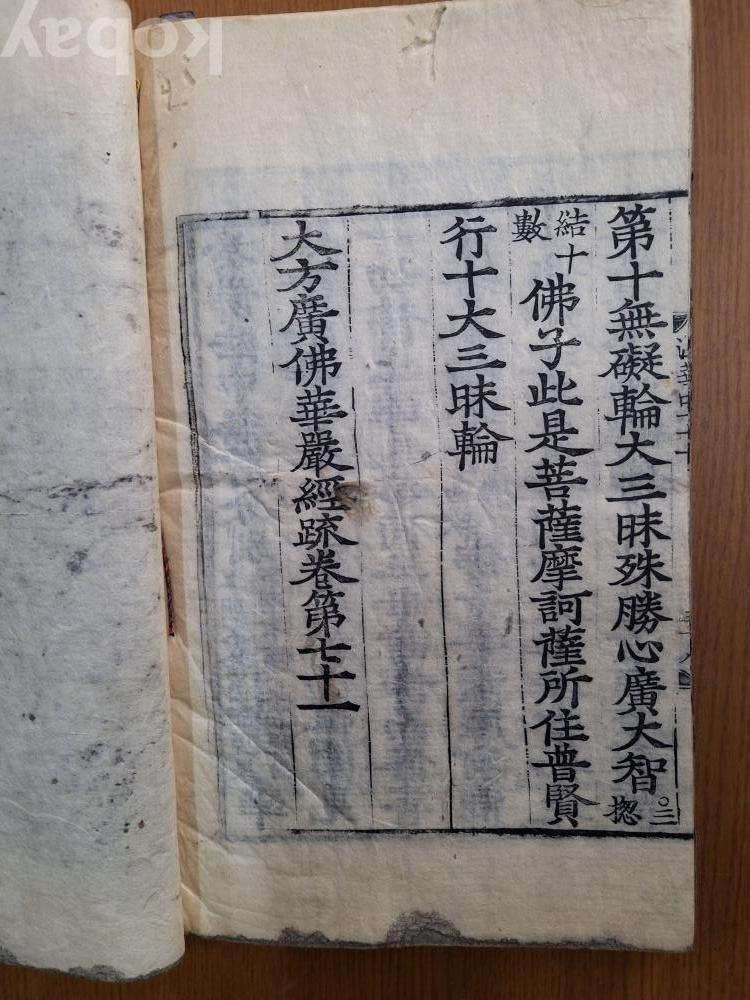 Kobay
第十無礙輪大三昧殊勝心廣大智○三揔
結十數佛子此是菩薩摩訶薩所住普賢
行十大三昧輪
大方廣佛華嚴經疏卷第七十一